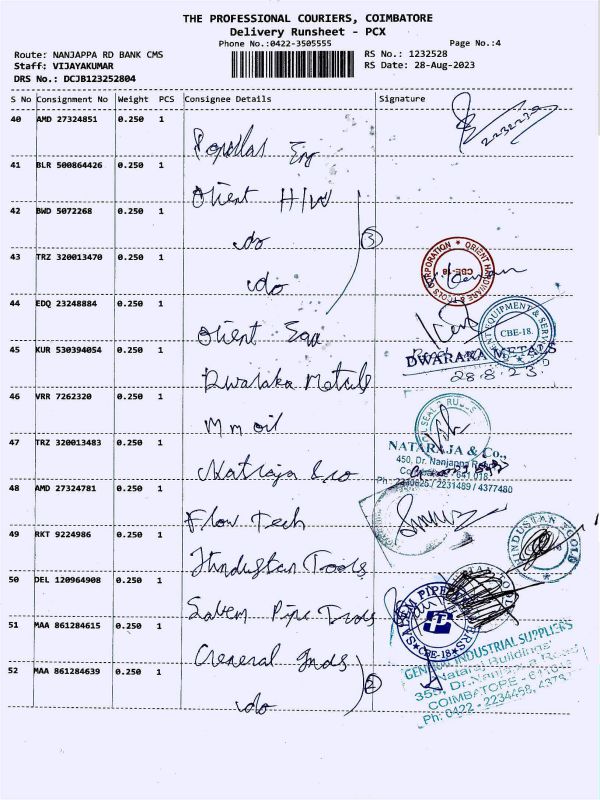 THE PROFESSIONAL COURIERS, COIMBATORE
Delivery Runsheet - PCX
Phone No.:0422-3505555
Page No.:4
Route: NANJAPPA RD BANK CMS
RS No.: 1232528
Staff: VIJAYAKUMAR
RS Date: 28-Aug-2023
DRS No.: DCJB123252804
S No Consignment No Weight PCS Consignee Details Signature
40 AMD 27324851 0.250 1
Popular Eng
41 BLR 500864426 0.250 1
Orient H/W
42 BWD 5072268 0.250 1
do
3
43 TRZ 320013470 0.250 1
do
ORIENT HARDWARE & TOOLS CORPORATION
CBE-18
44 EDQ 23248884 0.250 1
Orient
EQUIPMENT & SERV
CBE-18.
45 KUR 530394054 0.250 1
DWARAKA METALS
28.8.23
Dwaraka Metals
46 VRR 7262320 0.250 1
Mm oil
OIL SEAL
47 TRZ 320013483 0.250 1
NATARAJA & Co.,
450, Dr. Nanjappa
641 018.
Natraja & co
Ph / 2231489 / 4377480
48 AMD 27324781 0.250 1
Flow Tech
49 RKT 9224986 0.250 1
HINDUSTAN TOOLS
Hindustan Tools
50 DEL 120964908 0.250 1
Salem Pipe Traders
SALEM PIPE TRADERS
CBE-18
51 MAA 861284615 0.250 1
General Inds
GENERAL INDUSTRIAL SUPPLIERS
"Nataraj Buildings"
52 MAA 861284639 0.250 1
2
Dr. Nanjappa Road
COIMBATORE -
do
Ph: 0422 - 2234458,